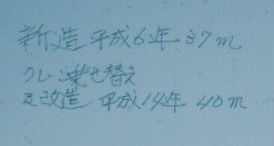 新造 平成6年 37m
クレーン乗せ替え
又改造 平成14年 40m